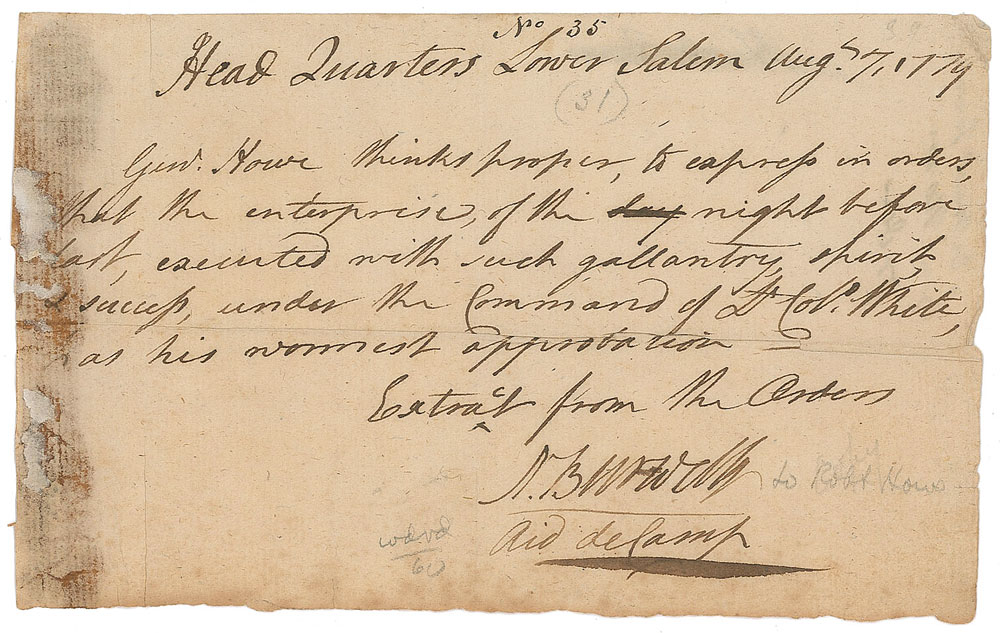 No 35
Head Quarters Lower Salem Augt 7, 1779
(31)
Genl. Howe thinks proper, to express in orders,
that the enterprise, of the day night before
last, executed with such gallantry, spirit,
success, under the Command of Lt Colo. White,
has his warmest approbation
Extract from the Orders
N. Burwell to Robt Howe
Aid de Camp
60